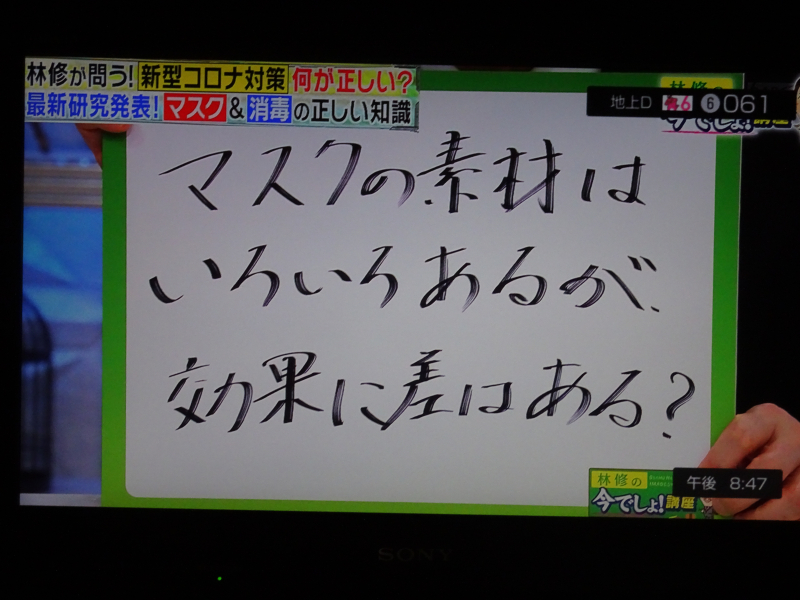 林修が問う!新型コロナ対策 何が正しい?
最新研究発表!マスク&消毒の正しい知識
地上D 6 061
マスクの素材は
いろいろあるが、
効果に差はある?
林修の
今でしょ!講座
午後 8:47
SONY